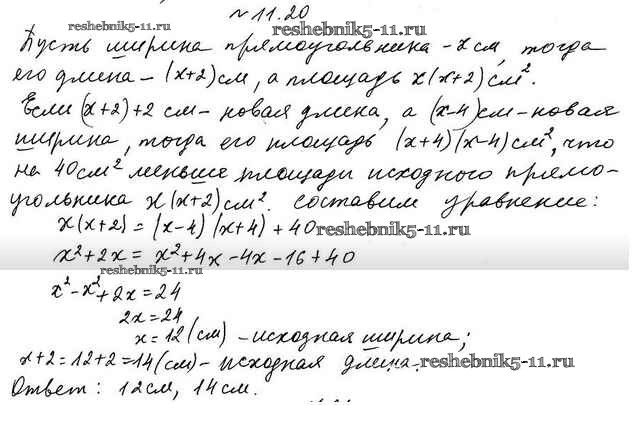 №11.20
reshebnik5-11.ru reshebnik5-11.ru
Пусть ширина прямоугольника - x см, тогда
его длина - (x+2) см, а площадь x(x+2) см².
Если (x+2)+2 см - новая длина, а (x-4) см - новая
reshebnik5-11.ru
ширина, тогда его площадь (x+4)(x-4) см², что
на 40 см² меньше площади исходного прямо-
угольника x(x+2) см². составим уравнение:
x(x+2) = (x-4)(x+4) + 40
reshebnik5-11.ru
x²+2x = x²+4x-4x-16+40
reshebnik5-11.ru
x²-x²+2x=24
2x=24
x=12 (см) - исходная ширина;
x+2=12+2=14 (см) - исходная длина.
reshebnik5-11.ru
Ответ: 12 см, 14 см.